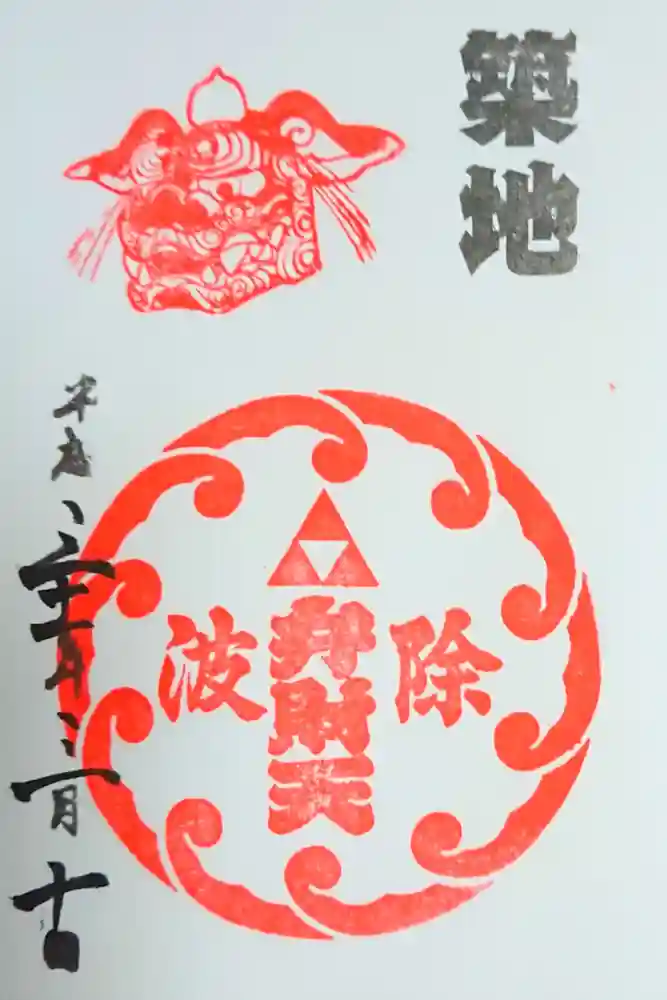 築地
波除
弁財天
平成二十五年
月十日